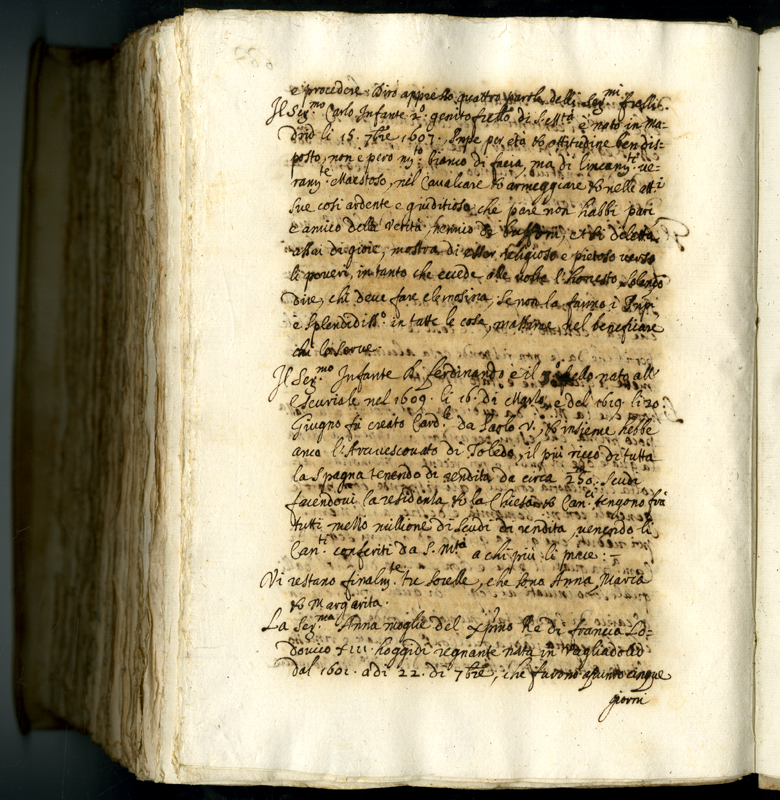 e procedere. Dirò appresso quattro parole delli Ser.mi fratelli.
Il Ser.mo Carlo Infante 2.o genito frello di S. Mtà è nato in Ma=
drid li 15. 7bre 1607. per età et attitudine ben dis=
posto, non è però m.to bianco di facia, ma di
ram.te Maestoso, nel Cavalcare et armeggiare et nelle atti
sue così ardente e giuditioso, che pare non habbi pari
è amico della verità, nemico de buffoni, et si deletta
assai di gioie, mostra di esser religioso e pietoso verso
li poveri, in tanto che ecede alle volte l'honesto, solendo
dire, chi deve fare elemosina, se non la fanno i Prnpi
è splendidiss.o in tutte le cose, massime nel beneficiare
chi lo serve.
Il Ser.mo Infante D. ferdinando è il 3.o frello nato all'
Escuriale nel 1609. li 16. di Marzo, e del 1619. li 20
Giugno fù creato Card.le da Paolo V., et insieme hebbe
anco l'Arcivescovato di Toledo, il più ricco di tutta
la Spagna tenendo di rendita da circa 250. Scudi
facendovi la residenza et la Chiesa et Can.ci tengono frà
tutti mezzo millione di scudi di rendita, venendo li
Can.ti conferiti da S. Mtà a chi più li piace: =
Vi restano finalm.te tre sorelle, che sono Anna Maria
et Margarita.
La Ser.ma Anna moglie del Xpmo Rè di francia Lo=
dovico XIII. hoggidì regnante nata in Vagliadolid
dal 1601. adi 22. di 7bre, che furono apunto cinque
giorni